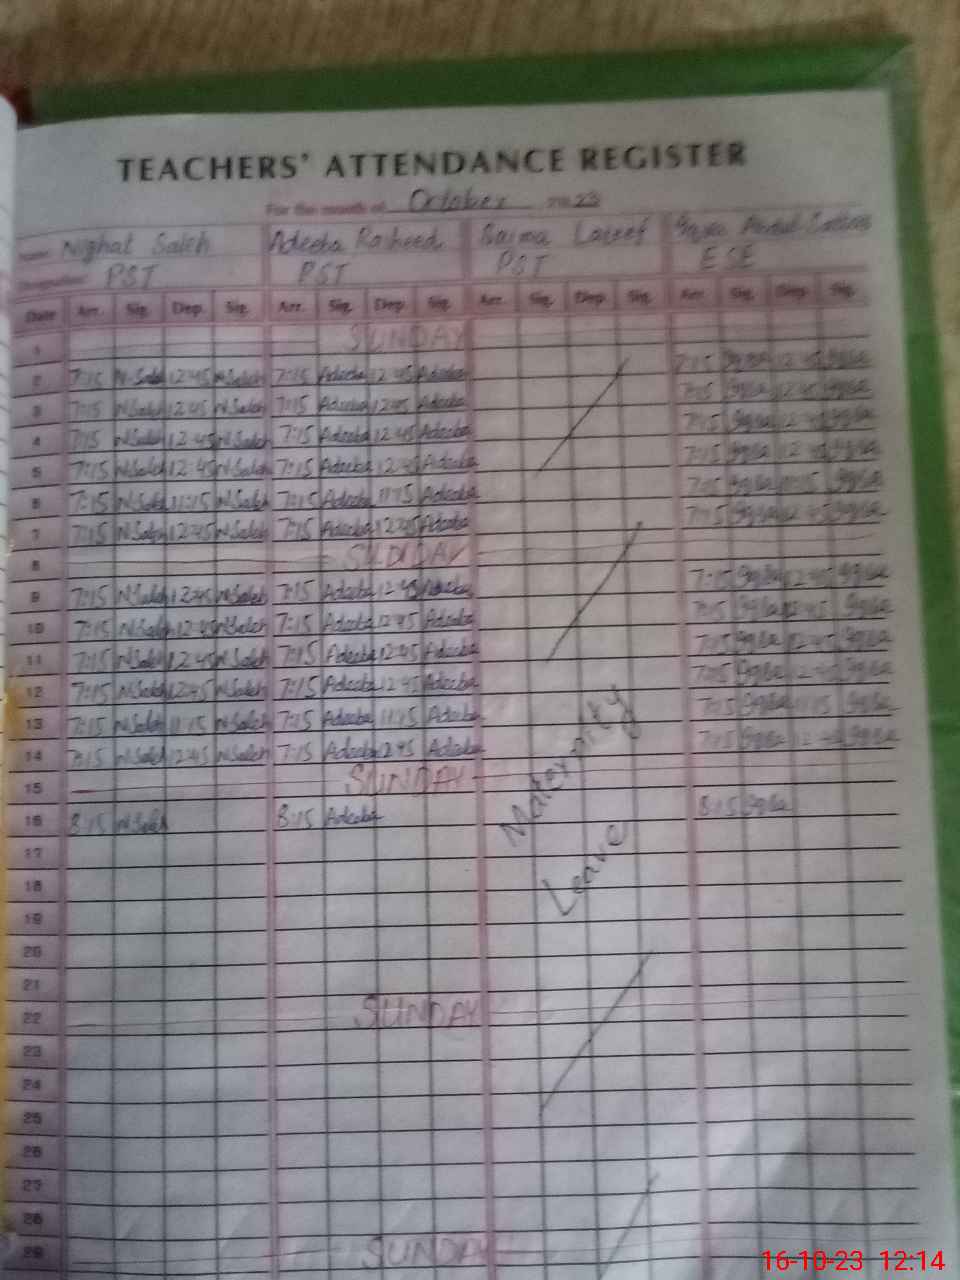 TEACHERS' ATTENDANCE REGISTER
For the month of October 20 23
Name Nighat Saleh Adeeba Rasheed Saima Lateef Abdul
Designation PST PST PST ESE
Date Arr. Sig. Dep. Sig. Arr. Sig. Dep. Sig. Arr. Sig. Dep. Sig. Arr. Sig. Dep. Sig.
1 SUNDAY
2 7:15 N.Saleh 12:45 N.Saleh 7:15 Adeeba 12:45 Adeeba 7:15 Iqra 12:45 Iqra
3 7:15 N.Saleh 12:45 N.Saleh 7:15 Adeeba 12:45 Adeeba 7:15 Iqra 12:45 Iqra
4 7:15 N.Saleh 12:45 N.Saleh 7:15 Adeeba 12:45 Adeeba 7:15 Iqra 12:45 Iqra
5 7:15 N.Saleh 12:45 N.Saleh 7:15 Adeeba 12:45 Adeeba 7:15 Iqra 12:45 Iqra
6 7:15 N.Saleh 11:15 N.Saleh 7:15 Adeeba 11:15 Adeeba 7:15 Iqra 11:15 Iqra
7 7:15 N.Saleh 12:45 N.Saleh 7:15 Adeeba 12:45 Adeeba 7:15 Iqra 12:45 Iqra
8 SUNDAY
9 7:15 N.Saleh 12:45 N.Saleh 7:15 Adeeba 12:45 Adeeba 7:15 Iqra 12:45 Iqra
10 7:15 N.Saleh 12:45 N.Saleh 7:15 Adeeba 12:45 Adeeba 7:15 Iqra 12:45 Iqra
11 7:15 N.Saleh 12:45 N.Saleh 7:15 Adeeba 12:45 Adeeba 7:15 Iqra 12:45 Iqra
12 7:15 N.Saleh 12:45 N.Saleh 7:15 Adeeba 12:45 Adeeba 7:15 Iqra 12:45 Iqra
13 7:15 N.Saleh 11:15 N.Saleh 7:15 Adeeba 11:15 Adeeba 7:15 Iqra 11:15 Iqra
14 N.Saleh 12:45 N.Saleh 7:15 Adeeba 12:45 Adeeba 7:15 Iqra 12:45 Iqra
15 SUNDAY
16 8:15 N.Saleh 8:15 Adeeba 8:15 Iqra
Maternity
Leave
17
18
19
20
21
22 SUNDAY
23
24
25
26
27
28
29 SUNDAY
16-10-23 12:14